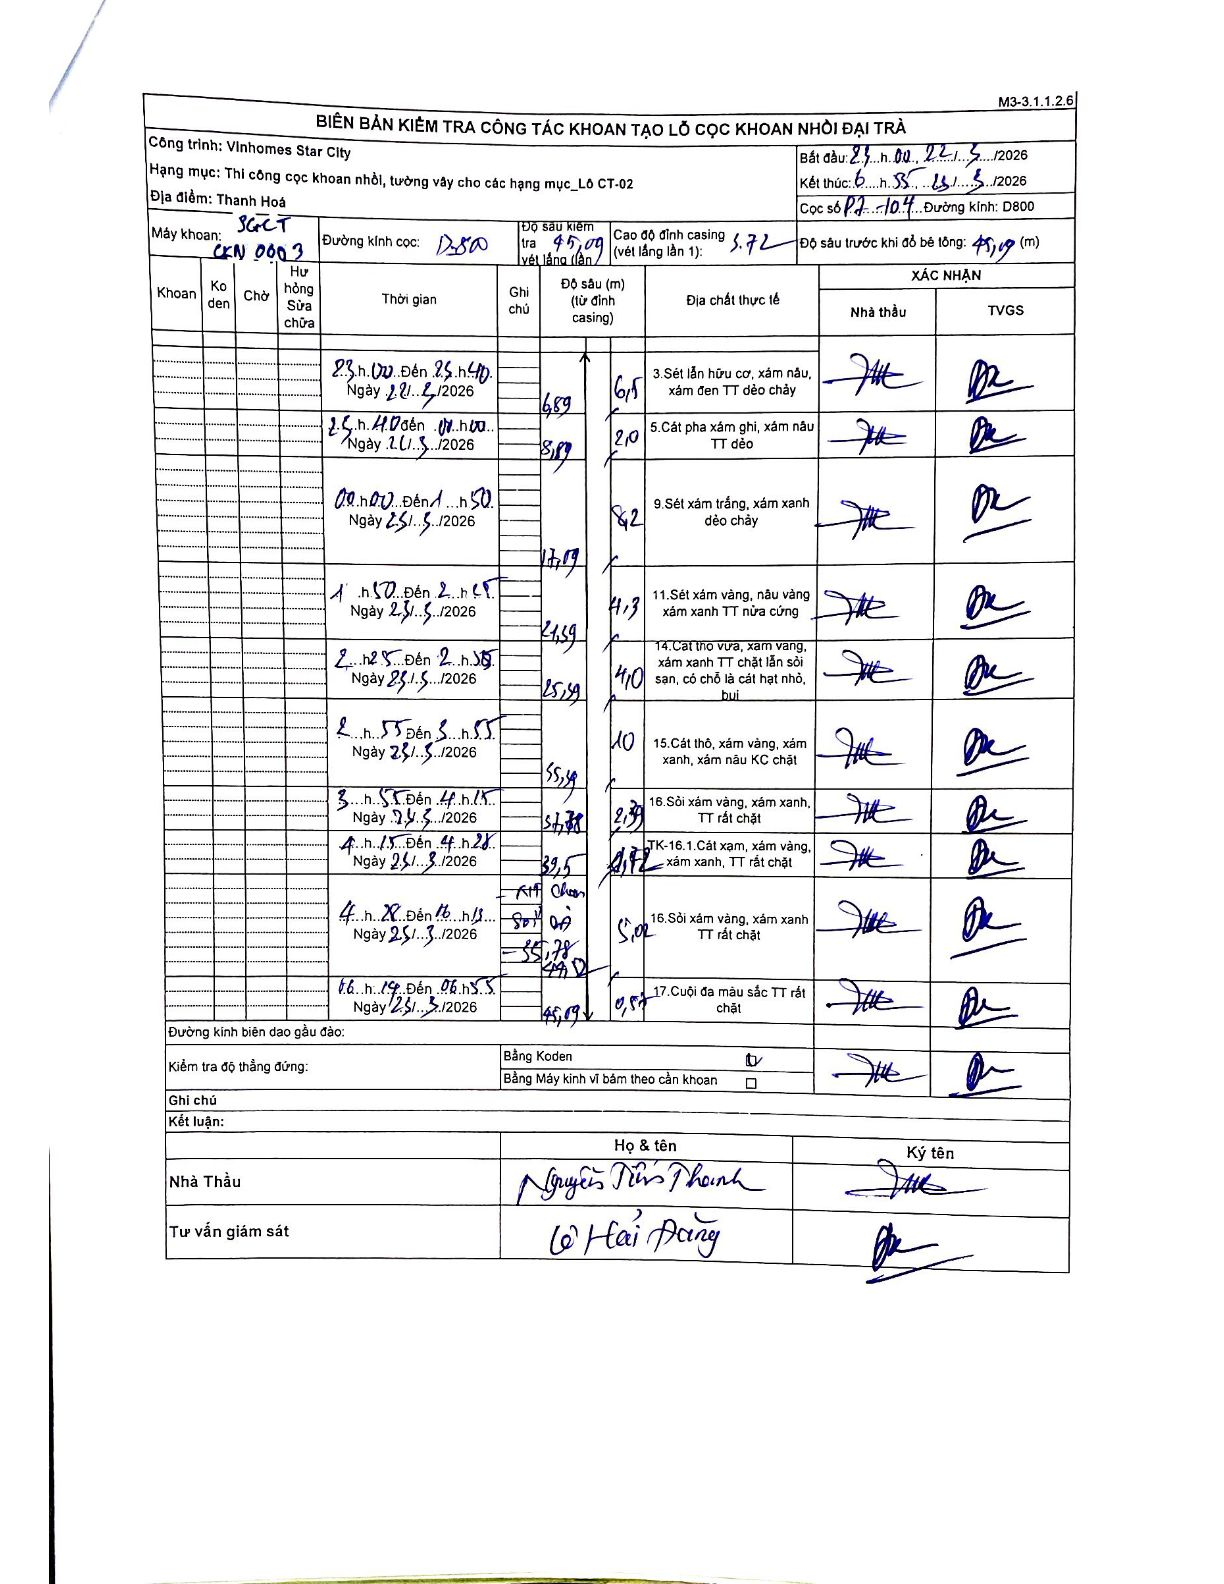 M3-3.1.1.2.6
BIÊN BẢN KIỂM TRA CÔNG TÁC KHOAN TẠO LỖ CỌC KHOAN NHỒI ĐẠI TRÀ
Công trình: Vinhomes Star City
Hạng mục: Thi công cọc khoan nhồi, tường vây cho các hạng mục_Lô CT-02
Địa điểm: Thanh Hoá
Bắt đầu: 23...h.00, 22/...3.../2026
Kết thúc: 6....h.55, ..23/....3/2026
Cọc số P2-104...Đường kính: D800
Máy khoan: SGCT
CKN 0003
Đường kính cọc: D800
Độ sâu kiểm
tra 45,09
vét lắng (lần
Cao độ đỉnh casing
(vét lắng lần 1): 3.72
Độ sâu trước khi đổ bê tông: 45,09 (m)
Khoan
Ko
den
Chờ
Hư
hỏng
Sửa
chữa
Thời gian
Ghi
chú
Độ sâu (m)
(từ đỉnh
casing)
Địa chất thực tế
XÁC NHẬN
Nhà thầu
TVGS
23.h.00..Đến 23.h40.
Ngày 22/..3./2026
6,89
6,5
3.Sét lẫn hữu cơ, xám nâu,
xám đen TT dẻo chảy
23.h.40đến .00.h00..
Ngày .22/..3./2026
8,89
2,0
5.Cát pha xám ghi, xám nâu
TT dẻo
00.h00..Đến1...h50.
Ngày 23/..3./2026
17,09
8,2
9.Sét xám trắng, xám xanh
dẻo chảy
1 .h.50..Đến 2..h 25.
Ngày 23/..3./2026
21,39
4,3
11.Sét xám vàng, nâu vàng
xám xanh TT nửa cứng
2...h25...Đến 2..h.55.
Ngày 23/..3../2026
25,39
4,0
14.Cát thô vừa, xám vàng,
xám xanh TT chặt lẫn sỏi
sạn, có chỗ là cát hạt nhỏ,
bụi
2...h..55Đến 3...h.55.
Ngày 23/..3../2026
35,39
10
15.Cát thô, xám vàng, xám
xanh, xám nâu KC chặt
3...h..55.Đến .4..h.15..
Ngày ..23..3../2026
37,78
2,39
16.Sỏi xám vàng, xám xanh,
TT rất chặt
4..h.15..Đến .4..h.28..
Ngày 23/...3./2026
39,5
1,72
TK-16.1.Cát xạm, xám vàng,
xám xanh, TT rất chặt
4..h..28..Đến 16..h.13...
Ngày 23/...3./2026
44,52
5,02
16.Sỏi xám vàng, xám xanh
TT rất chặt
06..h..14..Đến .06.h55.
Ngày 23/...3./2026
45,09
0,57
17.Cuội đa màu sắc TT rất
chặt
Đường kính biên dao gầu đào:
Kiểm tra độ thẳng đứng:
Bằng Koden
Bằng Máy kinh vĩ bám theo cần khoan
Ghi chú
Kết luận:
Họ & tên
Ký tên
Nhà Thầu
Nguyễn Tiến Thanh
Tư vấn giám sát
Lê Hải Đăng